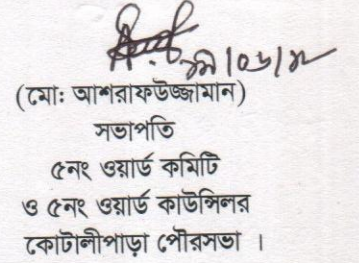 (মোঃ আশরাফউজ্জামান)
সভাপতি
৫নং ওয়ার্ড কমিটি
ও ৫নং ওয়ার্ড কাউন্সিলর
কোটালীপাড়া পৌরসভা ।